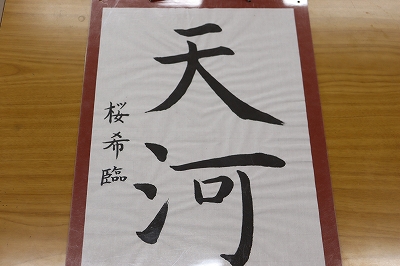 天河
桜希臨